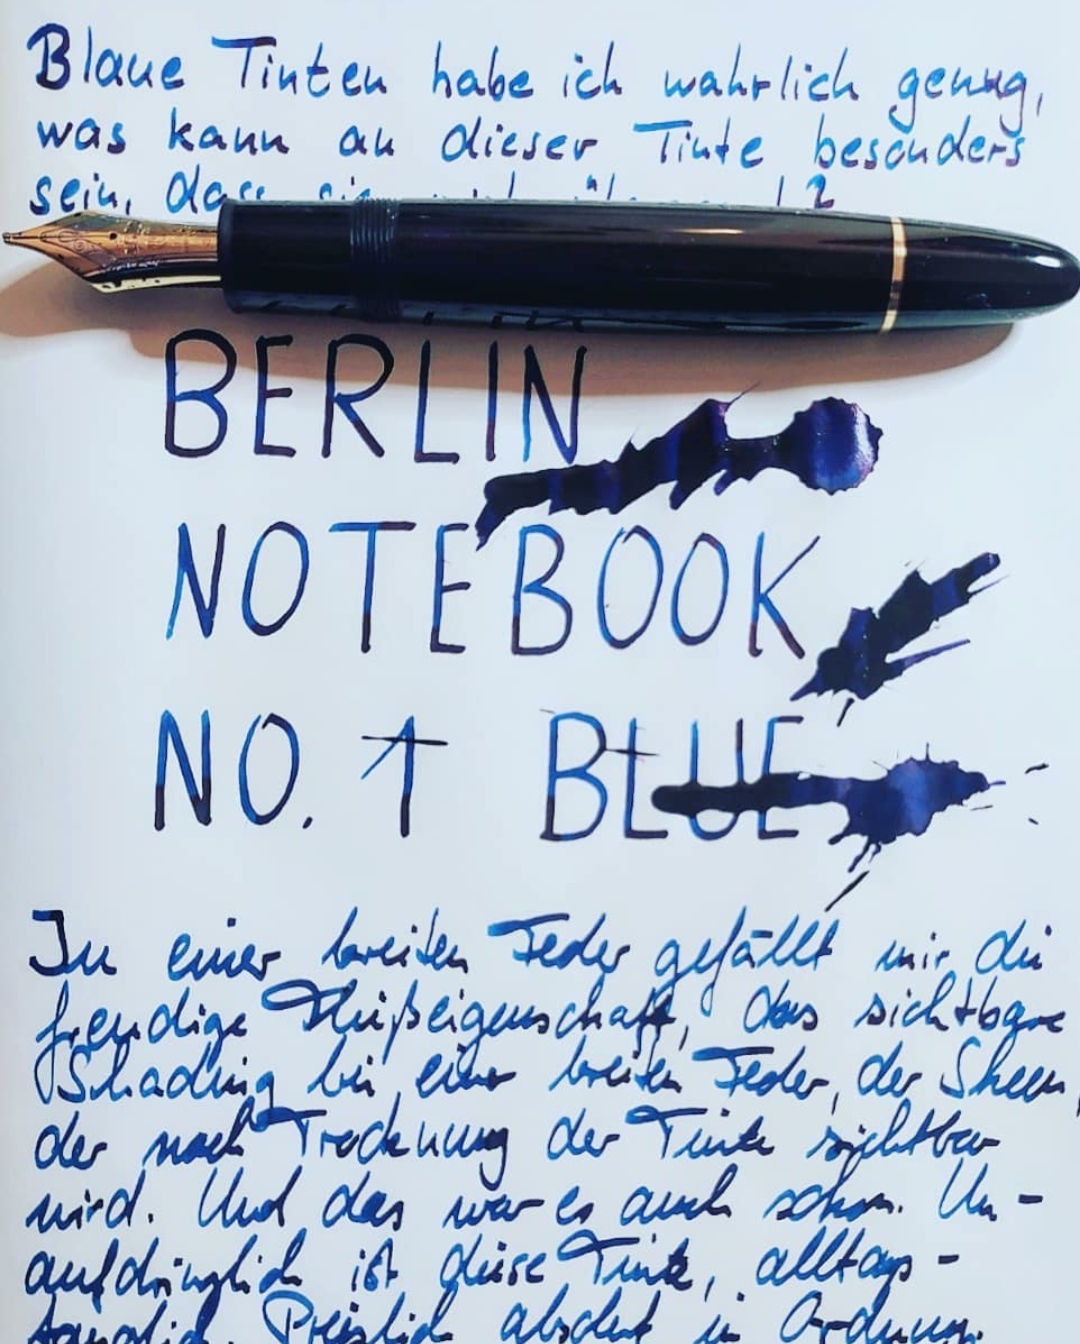 Blaue Tinten habe ich wahrlich genug,
was kann an dieser Tinte besonders
sein, dass sie
BERLIN
NOTEBOOK
NO. 1 BLUE
In einer breiten Feder gefällt mir die
freudige Flußeigenschaft, das sichtbare
Shading bei einer breiten Feder, der Sheen,
der nach Trocknung der Tinte sichtbar
wird. Und das war es auch schon. Un-
aufdringlich ist diese Tinte, alltags-
tauglich. Preislich absolut in Ordnung.